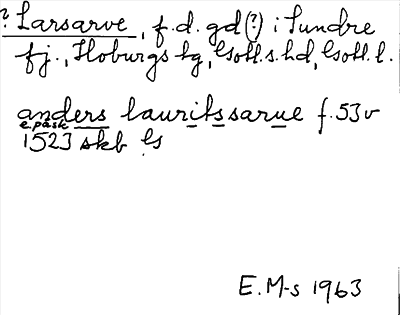 ? Larsarve, f.d. gd (?) i Sundre
fj., Hoburgs tg, Gotl.s. hd, Gotl. l.
anders lauritssarue f. 53v
e. påsk
1523 skb Gs
E. M-s 1963